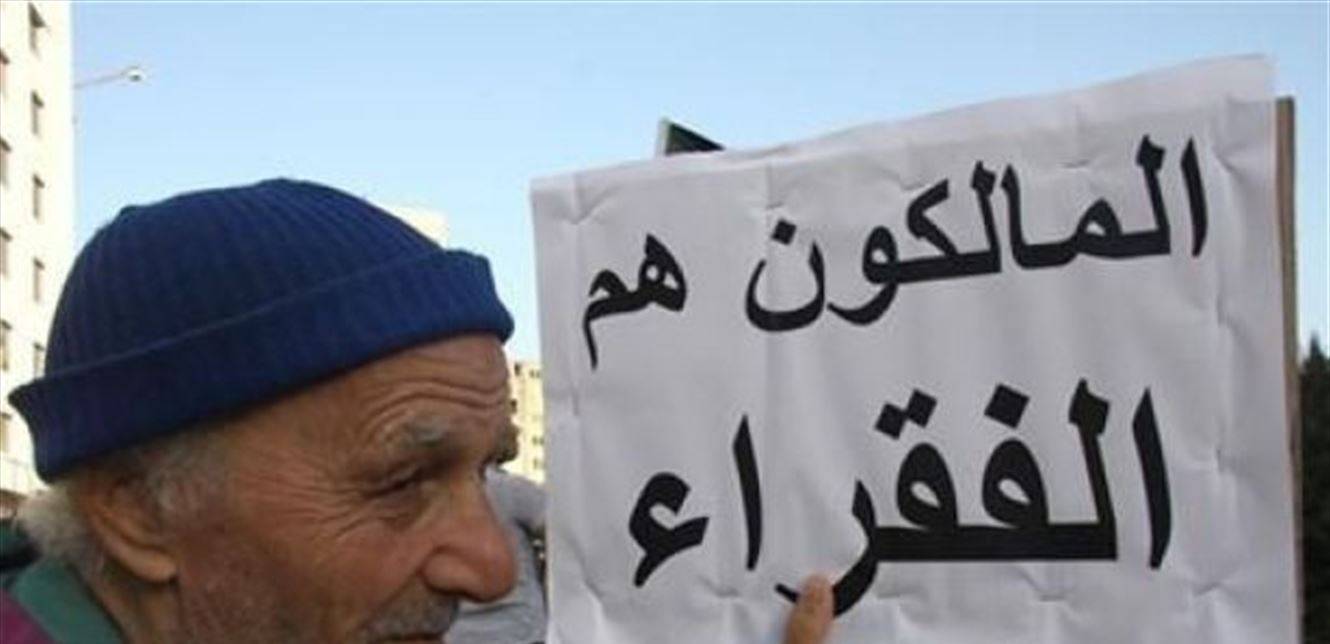 المالكون هم
الفقراء